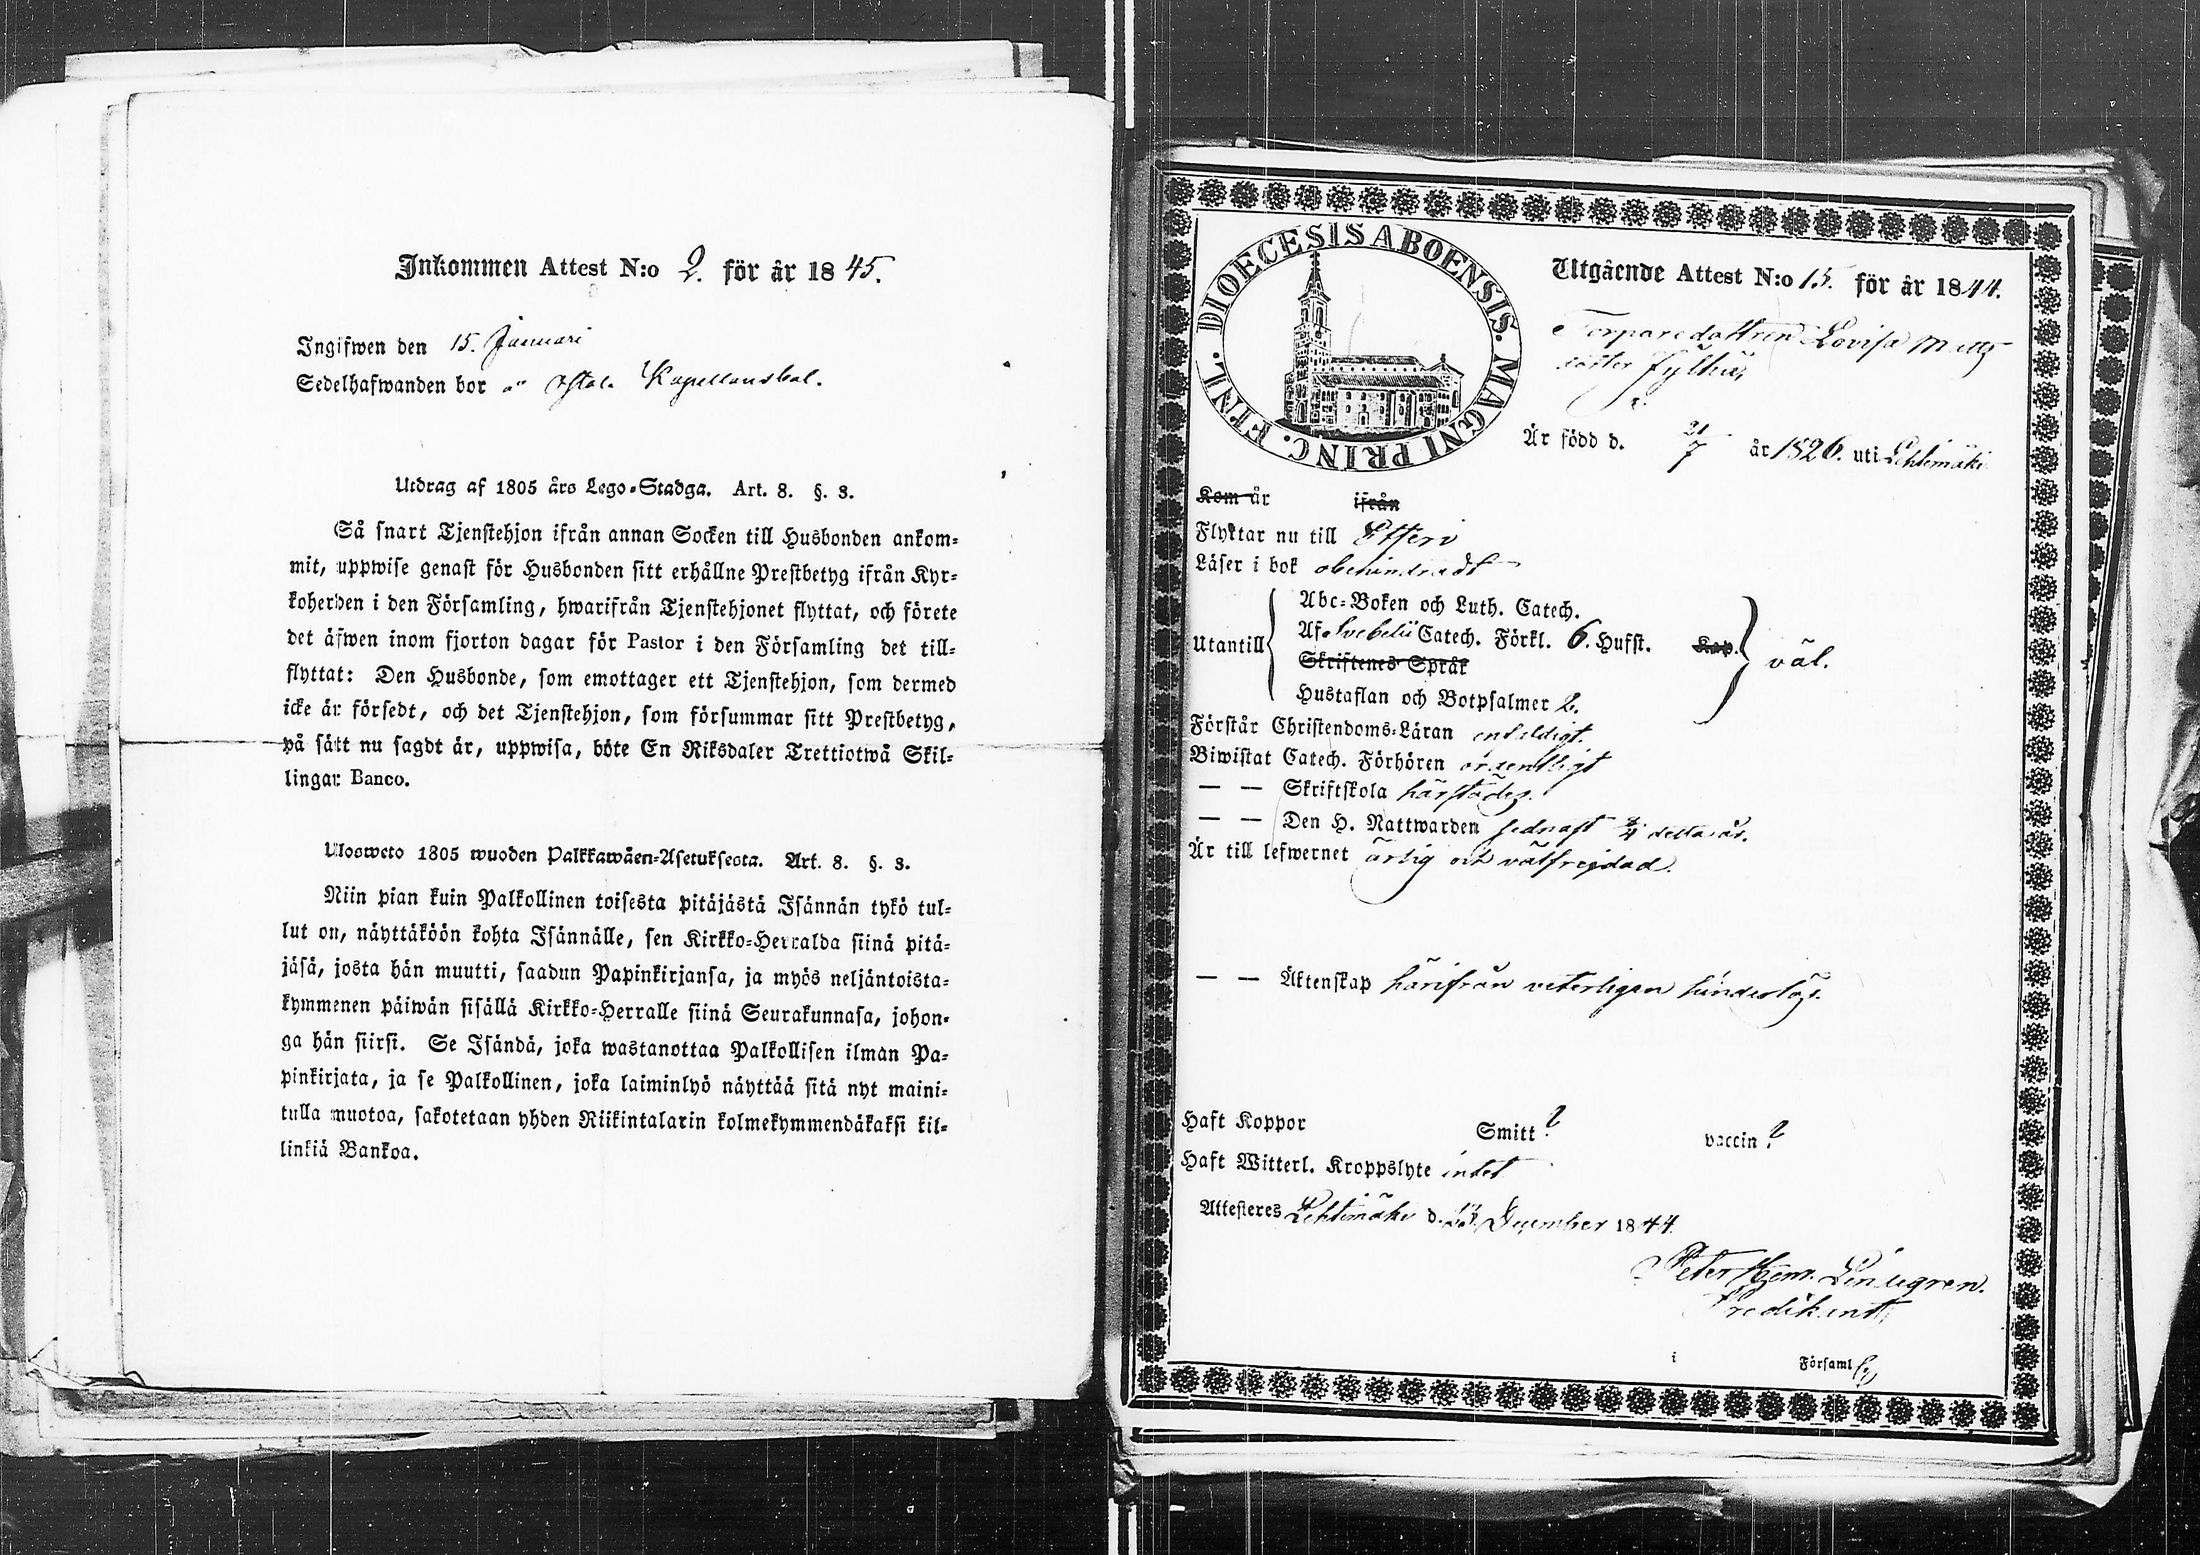 Inkommen Attest N:o 2. för år 1845.
Ingifwen den 15. Januari
Sedelhafwanden bor Kapellansbol.
Utdrag af 1805 års Lego-Stadga. Art. 8. §. 3.
Så snart Tjenstehjon ifrån annan Socken till Husbonden ankom-
mit, uppwise genast för Husbonden sitt erhållne Prestbetyg ifrån Kyr-
koherden i den Församling, hwarifrån Tjenstehjonet flyttat, och förete
det äfwen inom fjorton dagar för Pastor i den Församling det till-
flyttat: Den Husbonde, som emottager ett Tjenstehjon, som dermed
icke är försedt, och det Tjenstehjon, som försummar sitt Prestbetyg,
på sätt nu sagdt är, uppwisa, böte En Riksdaler Trettiotwå Skil-
lingar Banco.
Ulosweto 1805 wuoden Palkkawäen-Asetuksesta. Art. 8. §. 3.
Niin pian kuin Palkollinen toisesta pitäjästä Isännän tykö tul-
lut on, näyttäköön kohta Isännälle, sen Kirkko-Herralda siinä pitä-
jäsä, josta hän muutti, saadun Papinkirjansa, ja myös neljäntoista-
kymmenen päiwän sisällä Kirkko-Herralle siinä Seurakunnasa, johon-
ga hän siirsi. Se Isändä, joka wastanottaa Palkollisen ilman Pa-
pinkirjata, ja se Palkollinen, joka laiminlyö näyttää sitä nyt maini-
tulla muotoa, sakotetaan yhden Riikintalarin kolmekymmendäkaksi kil-
linkiä Bankoa.
DIOECESIS ABOENSIS. MAGNI PRINC. FINL.
Utgående Attest N:o 15. för år 1844.
Torparedottren Lovisa Matts
dotter
Är född d. 21/7 år 1826. uti Lehtimäki
Kom år ifrån
Flyttar nu till Etseri
Läser i bok obehindradt
Abc-Boken och Luth. Catech.
Utantill Af Svebelii Catech. Förkl. 6. Hufst. Kap. väl.
Skriftenes Språk
Hustaflan och Botpsalmer 2.
Förstår Christendoms-Läran enfaldigt.
Biwistat Catech. Förhören ordentligt
— — Skriftskola härstädes.
— — Den H. Nattwarden sednast detta år.
Är till lefwernet ärlig och välfrejdad.
— — Äktenskap härifrån veterligen hinderlös.
Haft Koppor Smitt? vaccin?
Haft Witterl. Kroppslyte intet
Attesteras Lehtimäki d. December 1844
Peter Herm. Lindegren.
Predikant
i Församl